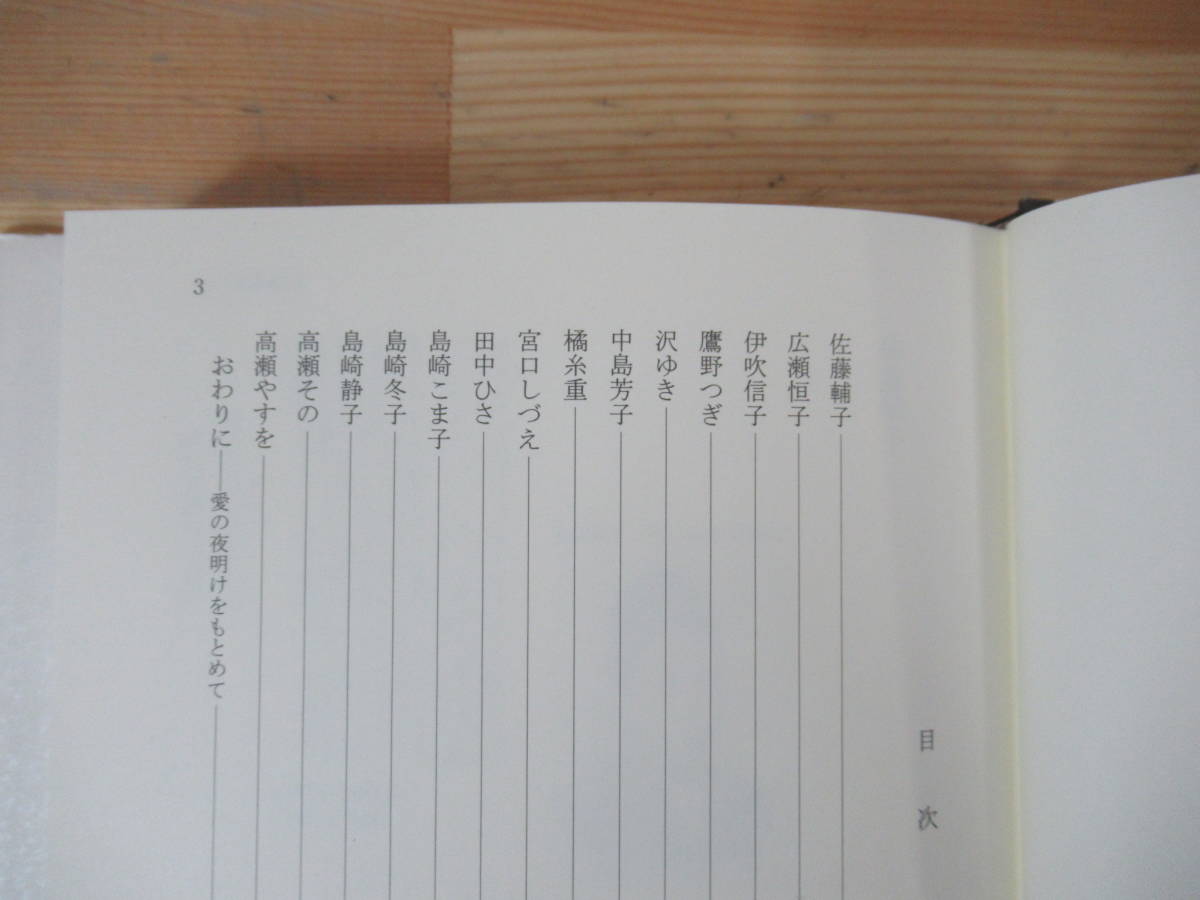 目次
佐藤輔子
広瀬恒子
伊吹信子
鷹野つぎ
沢ゆき
中島芳子
橘糸重
宮口しづえ
田中ひさ
島崎こま子
島崎冬子
島崎静子
高瀬その
高瀬やすを
おわりに――愛の夜明けをもとめて
3